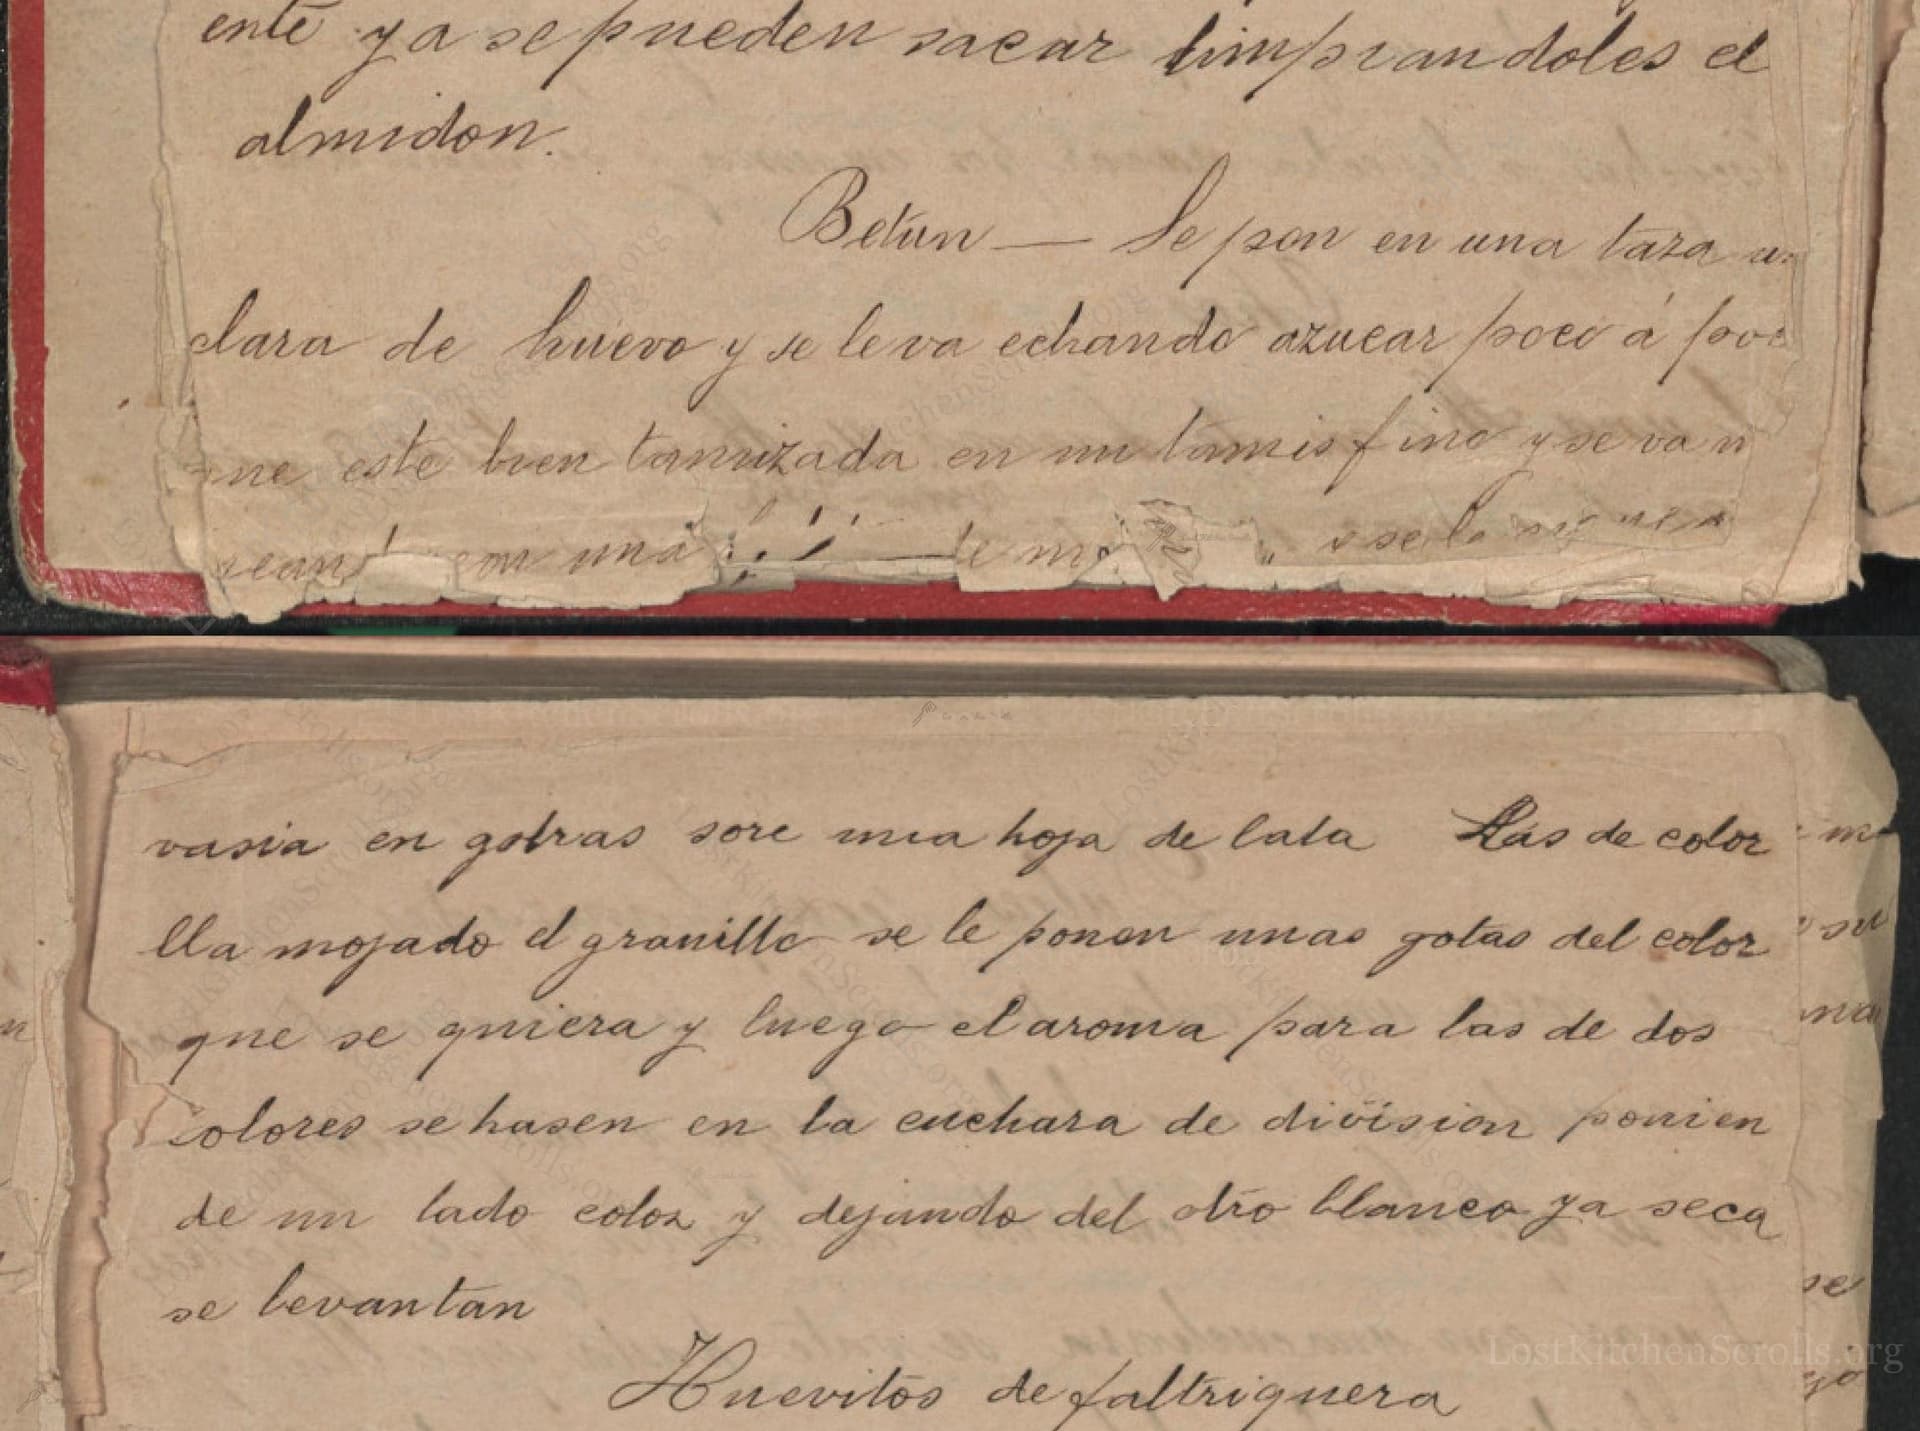 ente ya se pueden sacar limpiandoles el
almidon.
Betún — Se pon en una taza
clara de huevo y se le va echando azucar poco á poc
que este bien tamizada en un tamis fino y se va
con una
vasia en gotras sore una hoja de lata Las de color
lla mojado el granillo se le ponen unas gotas del color
que se quiera y luego el aroma para las de dos
colores se hasen en la cuchara de division ponien
de un lado color y dejando del otro blanco ya seca
se levantan
Huevitos de faltriquera
LostKitchenScrolls.org